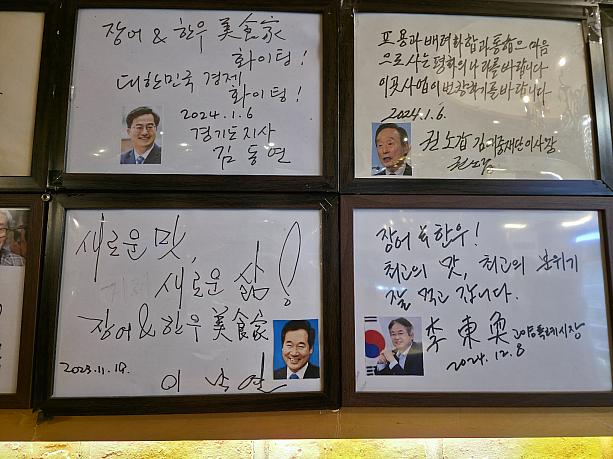 장어 & 한우 美食家
화이팅!
대한민국 경제
화이팅!
2024. 1. 6
경기도지사
김동연
포용과 배려 화합과 통합으로 마음
으로 사는 평화의 나라를 바랍니다
이곳 사업이 번창하기를 바랍니다
2024. 1. 6.
권노갑 김대중재단 이사장
권노갑
새로운 맛,
새로운 삶!
장어 & 한우 美食家
2023. 11. 19.
이낙연
장어 & 한우!
최고의 맛, 최고의 분위기
잘 먹고 갑니다.
李東奐 고양특례시장
2024. 12. 8